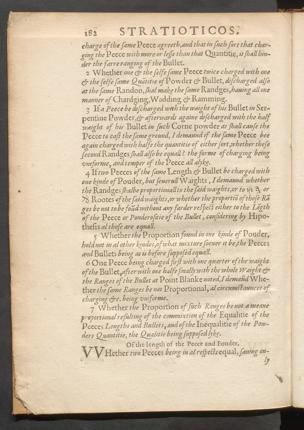 182 STRATIOTICOS.
charge of the same Peece agreeth, and that in such sort that char-
ging the Peece with more or lesse than that Quantitie, it shall hin-
der the farre ranging of the Bullet.
2 Whether one & the selfe same Peece twice charged with one
& the selfe same Quãtitie of Powder & Bullet, discharged also
at the same Randon, shal make the same Randges, hauing all one
manner of Chardging, Wadding & Ramming.
3 If a Peece be discharged with the waight of his Bullet in Ser-
pentine Powder, & afterwards againe discharged with the half
waight of his Bullet in such Corne powder as shall cause the
Peece to cast the same ground, I demaund if the same Peece bee
again charged with halfe the quantitie of either sort, whether these
second Randges shall also be equall: the forme of charging being
vniforme, and temper of the Peece all alyke.
4 If two Peeces of the same Length & Bullet be charged with
one kinde of Pouder, but seuerall Waights, I demaund whether
the Randges shalbe proportionall to the said waights, or to
Rootes of the said waights, or whether the proportiõ of these Rã
ges be not to be foũd without any farder respect either to the Lẽgth
of the Peece or Ponderositie of the Bullet, considering by Hipo-
thesis al those are equall.
5 Whether the Proportion found in one kinde of Pouder,
hold not in al other kindes, of what mixture soeuer it be, the Peeces
and Bullets being as is before supposed equall.
6 One Peece being charged first with one quarter of the waight
of the Bullet, after with one halfe, finally with the whole Waight &
the Ranges of the Bullet at Point Blanke noted, I demaũd Whe-
ther the same Ranges be not Proportional, al circumstaunces of
charging &c. being vniforme.
7 Whether the Proportion of such Ranges be not a meane
proportional resulting of the commixtion of the Equalitie of the
Peeces Lengths and Bullets, and of the Inequalitie of the Pou-
ders Quantitie, the Qualitie being supposed lyke.
Of the length of the Peece and Pouder.
VVHether two Peeces being in al respects equal, sauing on-
ly